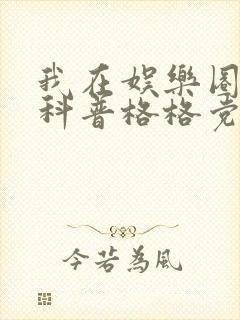 我在娱樂圈
科普格格党
今若為風